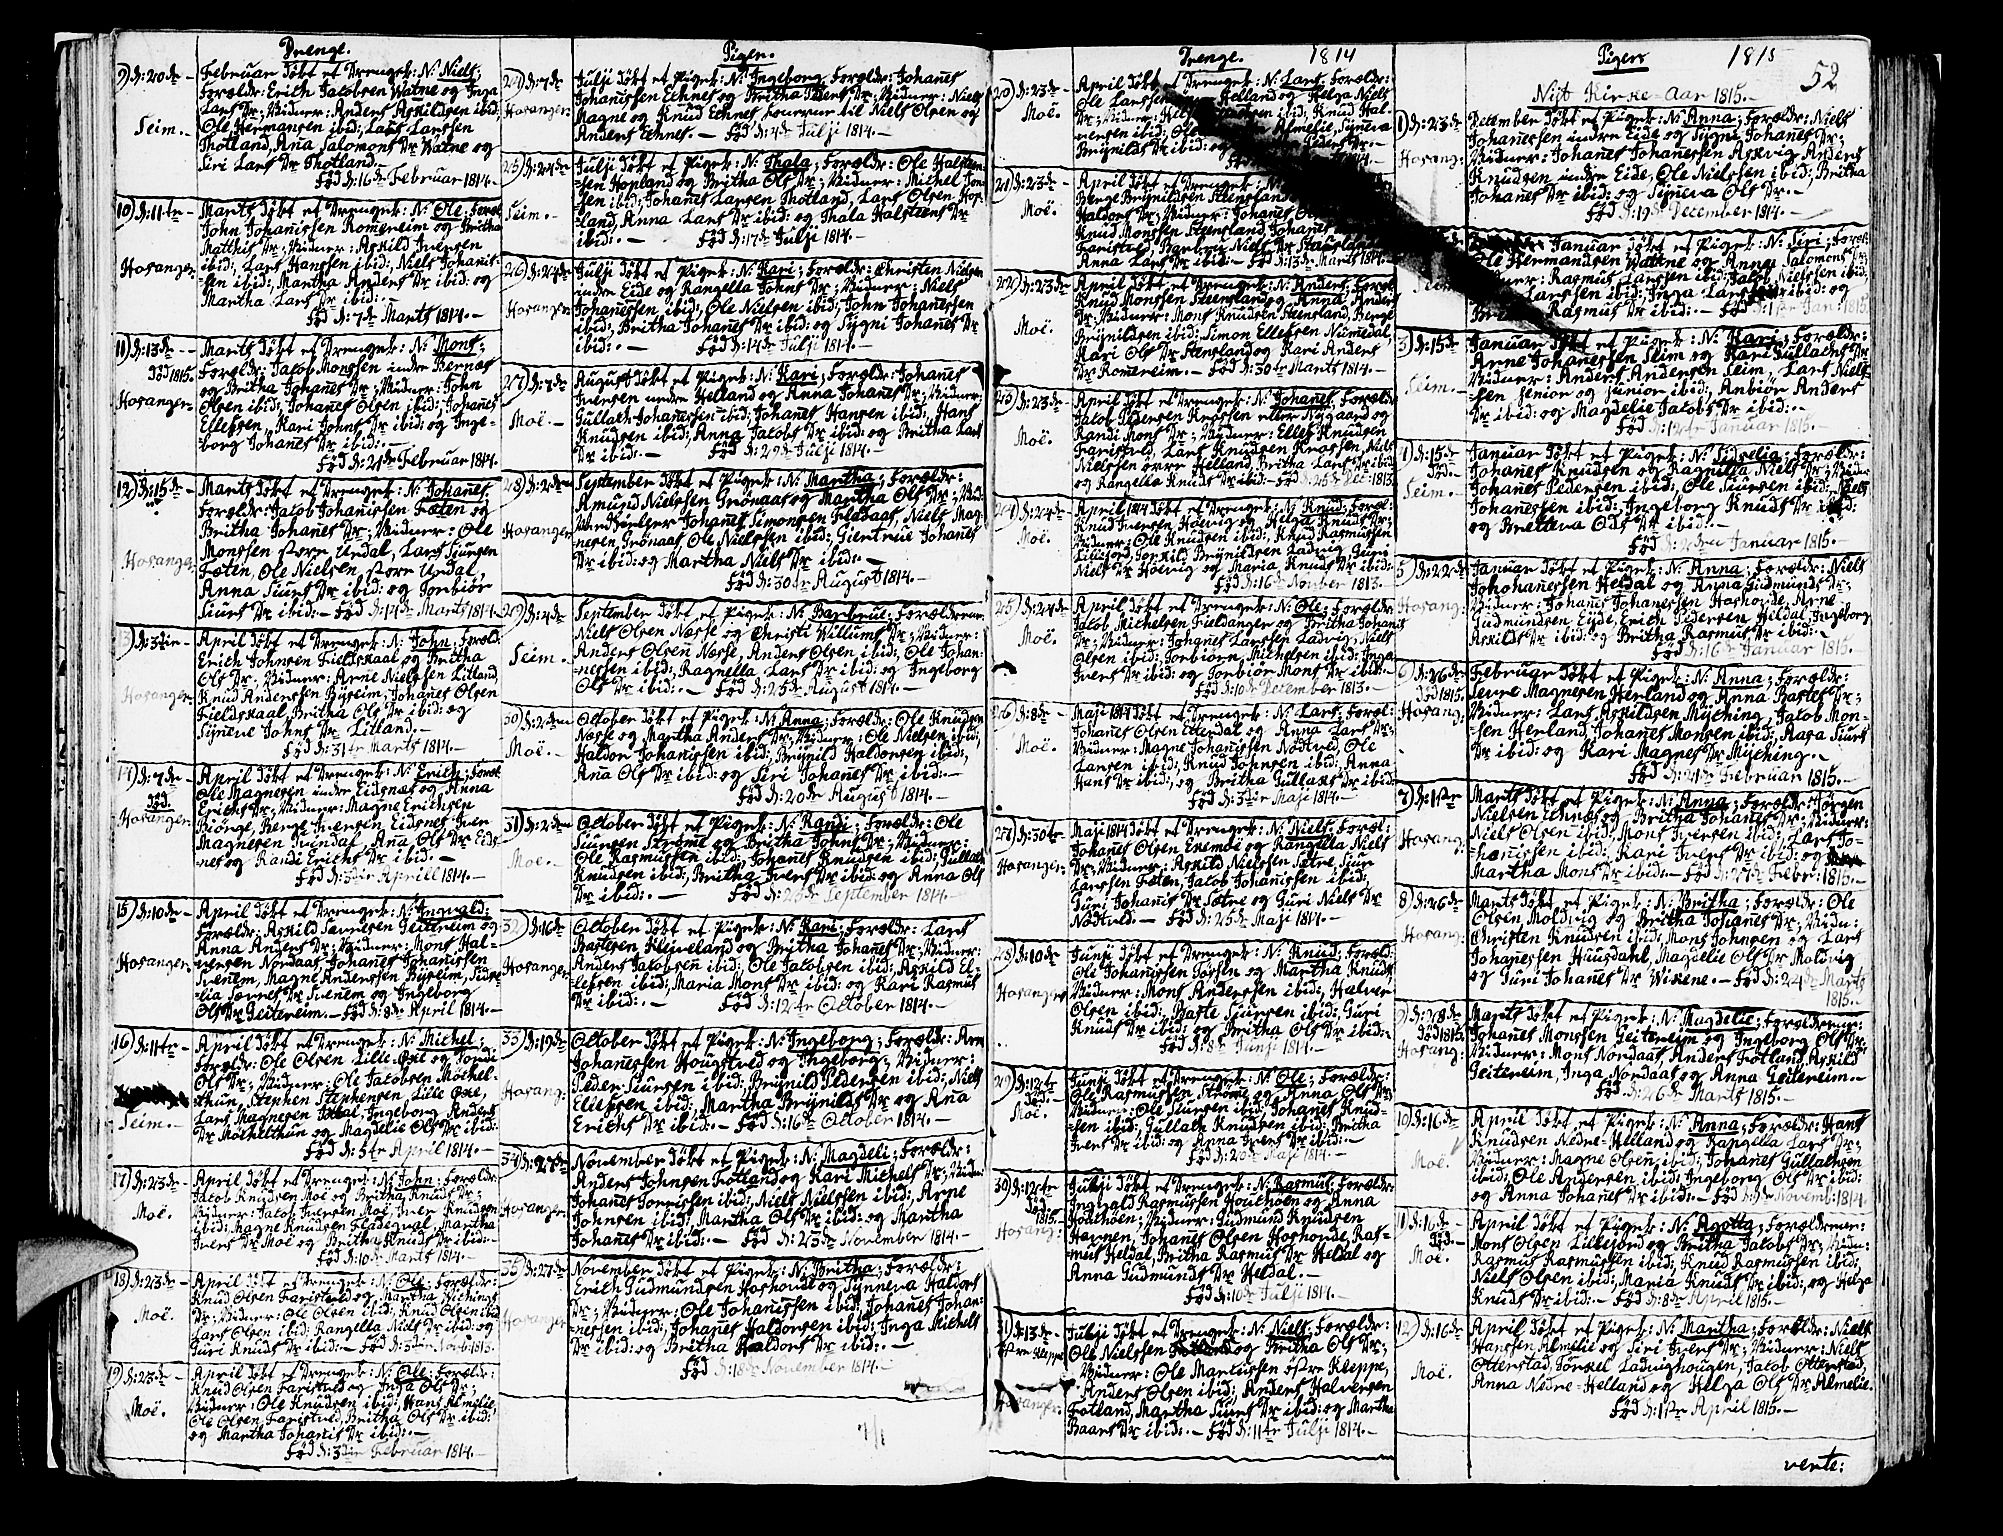 Drenge.
9) d: 20de
Seim.
Februar døbt et Drengeb: N: Niels;
Forældr: Erich Jacobsen Watne og Inga
Lars Dr; Vidner: Anders Askildsen ibid:
Ole Hermansen ibid: Lars Larssen
Thotland, Ana Salomons Dr Watne og
Siri Lars Dr Thotland.—
Fød d: 16de Februar 1814.—
10) d: 11te
Hosanger.
Marts døbt et Drengeb: N: Ole; Foræl:
John Johannssen Romereim og Britha
Matthis Dr; Vidner: Askild Iversen
ibid:, Lars Hanssen ibid:, Niels Johanis-
sen ibid:, Martha Anders Dr ibid: og
Martha Lars Dr ibid:.
Fød d: 7de Marts 1814.—
11) d: 13de
død 1815.
Hosanger
Marts døbt et Drengeb: N: Mons;
Forældr: Jacob Monssen indre Bernas
og Britha Johanes Dr; Vidner: John
Olsen ibid:, Johanes Olsen, ibid:, Johanes
Ellefsen, Kari Johns Dr ibid: og Inge-
borg Johanes Dr ibid:.—
Fød d: 21de Februar 1814.
12) d: 15de
Hosanger
Marts døbt et Drengeb: N: Johanes;
Forældr: Jacob Johanissen Fæten og
Britha Johanes Dr; Vidner: Ole
Monssen store Urdal, Lars Siursen
Fæten, Ole Nielsen, store Urdal
Anna Siurs Dr ibid: og Torbiør
Siurs Dr ibid:.— Fød d: 14de Marts 1814.
13) d: 3die
Hosanger
April døbt et Drengeb: N: John; Foræld:
Erich Johnsen Fieldskaal og Britha
Ols Dr; Vidner: Arne Nielssen Litland,
Knud Andersen Byreim, Johanes Olsen
Fieldskaal, Britha Ols Dr ibid: og
Syneve Johns Dr Litland.—
Fød d: 31te Marts 1814.—
14) d: 7de
død.
Hosanger
April døbt et Drengeb: N: Erich; Foræl:
Ole Magnesen indre Eidsnæs og Anna
Erichs Dr; Vidner: Magne Erichsen
Biørge, Berge Iversen Eidsnes Iver
Magnesen Tvindal, Ana Ols Dr Eids-
nes og Randi Erichs Dr ibid:.—
Fød d: 3die Aprill 1814.—
15) d: 10de
Hosanger.
April døbt et Drengeb: N: Ingvald:
Forældr: Askild Geitereim og
Anna Anders Dr; Vidner: Mons Hal-
versen Nordaas, Johanes Johanissen
Tvenem, Magne Anderssen Byreim, Sidse-
lia Dr Tvenem og Ingeborg
Ols Dr Geitereim.— Fød d: 8de April 1814.—
16) d: 11te
Seim.—
April døbt et Drengeb: N: Michel;
Forældr: Ole Olsen Lille-Oxe og
Ols Dr; Vidner: Ole Jacobsen Mochel-
thun, Stephen Stephensen, Lille Oxe,
Lars Magnesen Ingeborg Anders
Dr Mochelthun og Magdelie Ols Dr ibid:.
Fød d: 5te April 1814.—
17) d: 23de
Moe.
April døbt et Drengeb: N: John; Forældr:
Jacob Knudsen Moe og Britha Knuds Dr;
Vidner: Jacob Iversen Moe, Iver Knudsen
ibid: Magne Knudsen Martha
Ivers Dr Moe og Britha Knuds Dr ibid:.
Fød d: 10de Marts 1814.—
18) d: 23de
Moe.
April døbt et Drengeb: N: Ole; Forældr:
Knud Olsen Faristved og Martha
Dr; Vidner: Ole Olsen ibid:, Knud Olsen ibid:
Lars Olsen ibid: Rangella Niels Dr ibid: og
Guri Knuds Dr ibid:.—
19) d: 23de
Moe.
April døbt et Drengeb: N: Ole; Forældr:
Knud Olsen Faristved og Inga Ols Dr;
Vidner: Ole Knudsen ibid:, Hans Almelie,
Ole Olsen, Faristved, Britha Ols Dr ibid:
og Martha Johanis Dr ibid:.—
Fød d: 3die Februar 1814.—
Piger.
24) d: 7de
Hosanger.
Julji døbt et Pigeb: N: Ingeborg, Forældr: Johanes
Johanissen Echnes og Britha Peders Dr; Vidner: Niels
Magne og Knud Echnes Niels Olsen og
Anders Echnes.— Fød d: 4de Julji 1814.—
25) d: 24de
Seim.—
Julji døbt et Pigeb: N: Thala; Forældr: Ole Halsten-
sen Hopland og Britha Ols Dr; Vidner: Michel
sen ibid:, Johanes Larssen Thotland, Lars Olsen, Hop-
land, Anna Lars Dr ibid: og Thala Halsteens Dr
ibid:.— Fød d: 17de Julji 1814.—
26) d: 24de
Hosanger
Julji døbt et Pigeb: N: Kari; Forældr: Christen Nielsen
indre Eide og Rangella Johns Dr; Vidner: Niels
Johanessen, ibid:, Ole Nielsen ibid:, John Johanessen
ibid:, Britha Johanes Dr ibid: og Sygni Johanes Dr
ibid:.— Fød d: 14de Julji 1814.—
27) d: 7de
Moe.—
August døbt et Pigeb: N: Kari; Forældr: Johanes
Iversen nedre Helland og Anna Johanes Dr; Vidner:
Gullach Johanessen ibid: Johanes Hansen ibid:, Hans
Knudsen ibid:, Anna Jacobs Dr ibid: og Britha Lars
Dr ibid:.— Fød d: 29de Julji 1814.—
28) d: 2den
Hosanger
September døbt et Pigeb: N: Martha; Forældr:
Amund Nielssen Grønaas og Martha Ols Dr; Vid-
Johanes Simonsen Fladaas, Niels Mag-
nesen, Grønaas, Ole Nielssen ibid:, Giertrue Johanes
Dr ibid: og Martha Niels Dr ibid:.—
Fød d: 30te August 1814.—
29) d: 4de
Seim.—
September døbt et Pigeb: N: Barbrue; Forældrene:
Niels Olsen Næsse og Christi Willums Dr; Vidner:
Anders Olsen Næsse, Anders Olsen ibid:, Ole Johan-
nessen ibid:, Ragnella Lars Dr ibid:, og Ingeborg
Ols Dr ibid:.— Fød d: 25de August 1814.—
30) d: 2den
Moe.—
October døbt et Pigeb: N: Anna; Forældr: Ole Knudsen
Næsse og Martha Anders Dr; Vidner: Ole Nielsen ibid:,
Haldor Johanissen ibid:, Brynild Haldorsen ibid:,
Ana Ols Dr ibid: og Siri Johanes Dr ibid:.—
Fød d: 20de August 1814.—
31) d: 2den
Moe.—
October døbt et Pigeb: N: Randi; Forældr: Ole
Siursen Strøme og Britha Johns Dr; Vidner:
Ole Rasmussen ibid:, Johanes Knudsen ibid:, Gullach
Knudsen ibid:, Britha Ivers Dr ibid: og Anna Ols
Dr ibid:.— Fød d: 25de September 1814.—
32) d: 16de
Hosanger
October døbt et Pigeb: N: Kari; Forældr: Lars
Bastesen Kleiveland og Britha Johanes Dr; Vidner:
Anders Jacobsen ibid:, Ole Jacobsen ibid:, Askild El-
lefsen ibid:, Maria Mons Dr ibid: og Kari Rasmus
Dr ibid:.— Fød d: 12te October 1814.—
33) d: 19de
Hosang:
October døbt et Pigeb: N: Ingeborg; Forældr: Arn
Johanessen Hougstved og Ingeborg; Vidner:
Peder Siursen ibid:, Brynild Pedersen ibid:, Niels
Eliessen ibid:, Martha Brynilds Dr og Ana
Erichs Dr ibid:.— Fød d: 16de October 1814.—
34) d: 27de
Hosanger
November døbt et Pigeb: N: Magdeli; Forældr:
Anders Johnsen Fotland og Kari Michels Dr; Vidn:
Johanes ibid:, Niels Nielssen ibid:, Arne
Johnsen ibid:, Martha Ols Dr ibid: og Martha
Johanes Dr ibid:.— Fød d: 23de November 1814.—
35) d: 27de
Hosanger
November døbt et Pigeb: N: Britha; Forældr:
Erich Gudmundsen Hoshovde og Synneva Haldors
Dr; Vidner: Ole Johanissen ibid: Johanes Johan-
nessen ibid:, Johanes Haldorsen ibid: Inga Michels
Dr ibid: og Britha Haldors Dr ibid:.—
Fød d: 18de November 1814.—
Drenge. 1814
20) d: 23de
Moe.
April døbt Drengeb: N: Lars; Forældr:
Ole Larssen Helland og Helga Niels
Dr; Vidner: ibid: Knud Hal-
versen ibid: Ole Almelie, Syneva
Brynilds Dr ibid: og Peders Dr.—
1814.—
21) d: 23de
Moe.
April døbt et Drengeb: N:
Berge Brynildsen Steensland
Haldors Dr; Vidner: Johanes
Knud Monssen Steensland, Johanes
Faristvedt, Barbru Niels Dr Steensland
Anna Lars Dr ibid:.— Fød d: 13de Marts 1814.
22) d: 23de
Moe.
April døbt et Drengeb: N: Anders; Foræl:
Knud Monssen Steensland og Anna Anders
Dr; Vidner: Mons Knudsen Steensland, Berge
Brynildsen ibid: Simon Ellefsen Numedal,
Kari Ols Dr Stensland og Kari Anders
Dr Romereim.— Fød d: 30te Marts 1814.—
23) d: 23de
Moe.
April døbt et Drengeb: N: Johanes; Forældr:
Jacob Pedersen Knossen eller Nygaard og
Randi Mons Dr; Vidner: Ellef Knudsen
Faristved, Lars Knudsen Knossen, Niels
Nielssen øvre Helland, Britha Lars Dr ibid:
og Rangella Knuds Dr ibid:— Fød d: 25de Dec: 1813.
24) d: 24de
Moe.
April 1814 døbt et Drengeb: N: Knud; Foræl:
Knud Iversen Hoevig og Helga Knuds Dr;
Vidner: Ole Knudsen ibid:, Knud Rasmussen
Lillefiord, Torkild Brynildsen Ladvig, Guri
Niels Dr Hoevig og Maria Knuds Dr ibid:
Fød d: 16de Novber 1813.—
25) d: 24de
Moe.
April døbt et Drengeb: N: Ole; Forældr:
Jacob Michelsen Fieldanger og Britha Johanes
Dr; Vidner: Johanes Larssen Ladvig, Niels
Olsen ibid: Torbiørn, Michelsen ibid: Inga
Ivers Dr ibid: og Torbiør Mons Dr ibid:.
Fød d: 10de December 1813.—
26) d: 8de
Moe.
Maji 1814 døbt et Drengeb: N: Lars; Foræl:
Johanes Olsen Etterdal og Anna Lars Dr;
Vidner: Magne Johanissen Nodtved, Ole
Larssen ibid:, Knud Johnsen ibid:, Anna
Hans Dr ibid:, og Britha Gullaks Dr ibid:
Fød d: 3die Maji 1814.—
27) d: 30te
Hosanger
Maji 1814 døbt et Drengeb: N: Niels; Foræl:
Johanes Olsen Exemoe og Rangella Niels
Dr; Vidner: Askild Nielssen Sætre, Siur
Larssen Fæten, Jacob Johanissen ibid:,
Guri Johanis Dr Sætre og Guri Niels Dr
Nodtved.— Fød d: 25de Maji 1814.—
28) d: 10de
Hosanger
Junji døbt et Drengeb: N: Knud; Foræld:
Ole Johanissen og Martha Knuds
Vidner: Mons Anderssen ibid:, Halver
Olsen ibid:, Baste Siursen ibid:, Guri
Knuds Dr ibid: og Britha Ols Dr ibid:.
Fød d: 8de Junji 1814.—
29) d: 12te
død.
Moe.
Junji døbt et Drengeb: N: Ole; Forældr:
Ole Rasmussen Strøme og Anna Ols Dr;
Vidner: Ole Siursen ibid:, Johanes Knud-
sen ibid:, Gullack Knudsen ibid:, Britha
Ivers Dr ibid: og Anna Ivers Dr ibid:.—
Fød d: Maji 1814.—
30) d: 12te
død
1815.
Hosang:
Julji døbt et Drengeb: N: Rasmus; Forældr:
Ingvald Rasmussen Houchoen og Anna
Houchoen; Vidner: Gudmund Knudsen
Havnen, Johanes Olsen Hoshovde, Ras-
mus Heldal, Britha Rasmus Dr Heldal og
Anna Gudmunds Dr Heldal.—
Fød d: 10de Julji 1814.—
31) d: 13de
Øfre Kleppe
Hosanger.
Julji døbt et Drengeb: N: Niels; Forældr:
Ole Nielssen og Britha Ols Dr;
Vidner: Ole Martissen Øfre Kleppe,
Anders Olsen ibid:, Anders Halversen
Fotland, Martha Siurs Dr ibid: og Martha
Baars Dr ibid:.— Fød d: 11te Julji 1814.—
Piger 1815
52
Nyt Kirke-Aar 1815.—
1) d: 23de
Hosang:
December døbt et Pigeb: N: Anna; Forældr: Niels
Johanessen indre Eide og Sygni Johanes Dr;
Vidner: Johanes Johanessen Askvig, Anders
Knudsen indre Eide, Ole Nielssen ibid:, Britha
Johanes Dr ibid: og Syneva Ols Dr.—
Fød d: 19de December 1814.—
Seim
Januar døbt et Pigeb: N: Siri; Foræl:
Ole Hermandsen Watne og Anna Salomons Dr;
Vidner: Rasmus Larssen ibid: Jacob Nielssen ibid:
Larssen ibid:, Inga Lars ibid: og
Rasmus Dr ibid:.— Fød d: 1ste Jan: 1815.
3) d: 15de
Seim.—
Januar døbt et Pigeb: N: Kari; Forældr:
Arne Johanessen Seim og Kari Gullachs Dr
Vidner: Anders Andersen Seim, Lars Niels-
sen Senior og Junior ibid:, Anbiør Anders
Dr ibid: og Magdelie Jacobs Dr ibid:.—
Fød d: 12te Januar 1815.—
4) d: 15de
død.
Seim.—
Januar døbt et Pigeb: N: Sidselia; Forældr:
Johanes Knudsen og Ragnilla Niels Dr; Vidner
Johanes Pedersen ibid:, Ole Siursen ibid:, Niels
Johanessen ibid:, Ingeborg Knuds Dr ibid:
og Bretteva Ods Dr ibid:.—
Fød d: 2den Januar 1815.—
5) d: 22de
Hosang:
Januar døbt et Pigeb: N: Anna; Forældr: Niels
Johohanessen Heldal og Anna Gudmunds Dr;
Vidner: Johanes Johanessen Hoshovde, Arne
Gudmundsen, Eyde, Erich Pedersen Heldal, Ingeborg
Askilds Dr ibid: og Britha Rasmus Dr ibid:.—
Fød d: 16de Januar 1815.—
6) d: 26de
død 1815.
Hosang:
Februar døbt et Pigeb: N: Anna; Forældr:
Magnesen Herland og Anna Bastes Dr;
Vidner: Lars Askildsen Myching, Jacob Mon-
sen Herland, Johanes Monsen ibid:, Aaga Siurs
Dr ibid: og Kari Magnes Dr Myching.—
Fød d: 21de Februar 1815.—
7) d: 1ste
Hosang:
Marts døbt et Pigeb: N: Anna; Forældr: Jørgen
Nielssen Echnæs og Britha Johanes Dr; Vidner:
Niels Olsen ibid:, Mons Iversen ibid:, Lars Jo-
hanissen ibid:, Kari Ivers Dr ibid: og
Martha Mons Dr ibid:.— Fød d: 27de Feber: 1815.—
8) d: 26de
Hosang:
Marts døbt et Pigeb: N: Britha; Forældr: Ole
Olsen, Moldvig og Britha Johanes Dr; Vidn:
Christen Knudsen ibid:, Mons Johnsen og Lars
Johanessen Huusdahl, Magdelie Ols Dr Moldvig
og Guri Johanes Dr Wikene.— Fød d: 24de Marts
1815.—
9) d: 28de
død 1815.
Hosang:
Marts døbt et Pigeb: N: Magdelie; Forældrene:
Johanes Monssen Geitereim og Ingeborg Ols Dr
Vidner: Mons Nordaas, Anders Fotland, Askild
Geitereim, Inga Nordaas og Anna Geitereim.—
Fød d: 26de Marts 1815.—
10) d: 16de
Moe.
April døbt et Pigeb: N: Anna; Forældr: Hans
Knudsen Nedre-Helland og Rangella Lars Dr;
Vidner: Magne Olsen, ibid:, Johanes Gullachsen
ibid:, Ole Andersen, ibid:, Ingeborg Ols Dr ibid:
og Anna Johanes Dr ibid:.— Fød d: Novemb: 1814.
11) d: 16de
død.
Moe.
April døbt et Pigeb: N: Agotta; Forældrene:
Mons Olsen Lillefiord og Britha Jacobs Dr; Vidn:
Rasmus Rasmussen ibid:, Knud Rasmussen ibid:
Niels Olsen ibid:, Maria Knuds Dr ibid:, og Helga
Knuds Dr ibid:.— Fød d: 8de April 1815.—
12) d: 16de
Moe.
April døbt et Pigeb: N: Martha; Forældr: Niels
Hanssen Almelie og Siri Ivers Dr; Vidner: Niels
Otterstad, Torkel Ladvighougen, Jacob Otterstad,
Anna Nedre-Helland og Helga Ols Dr Almelie.
Fød d: 1ste April 1815.—
verte: